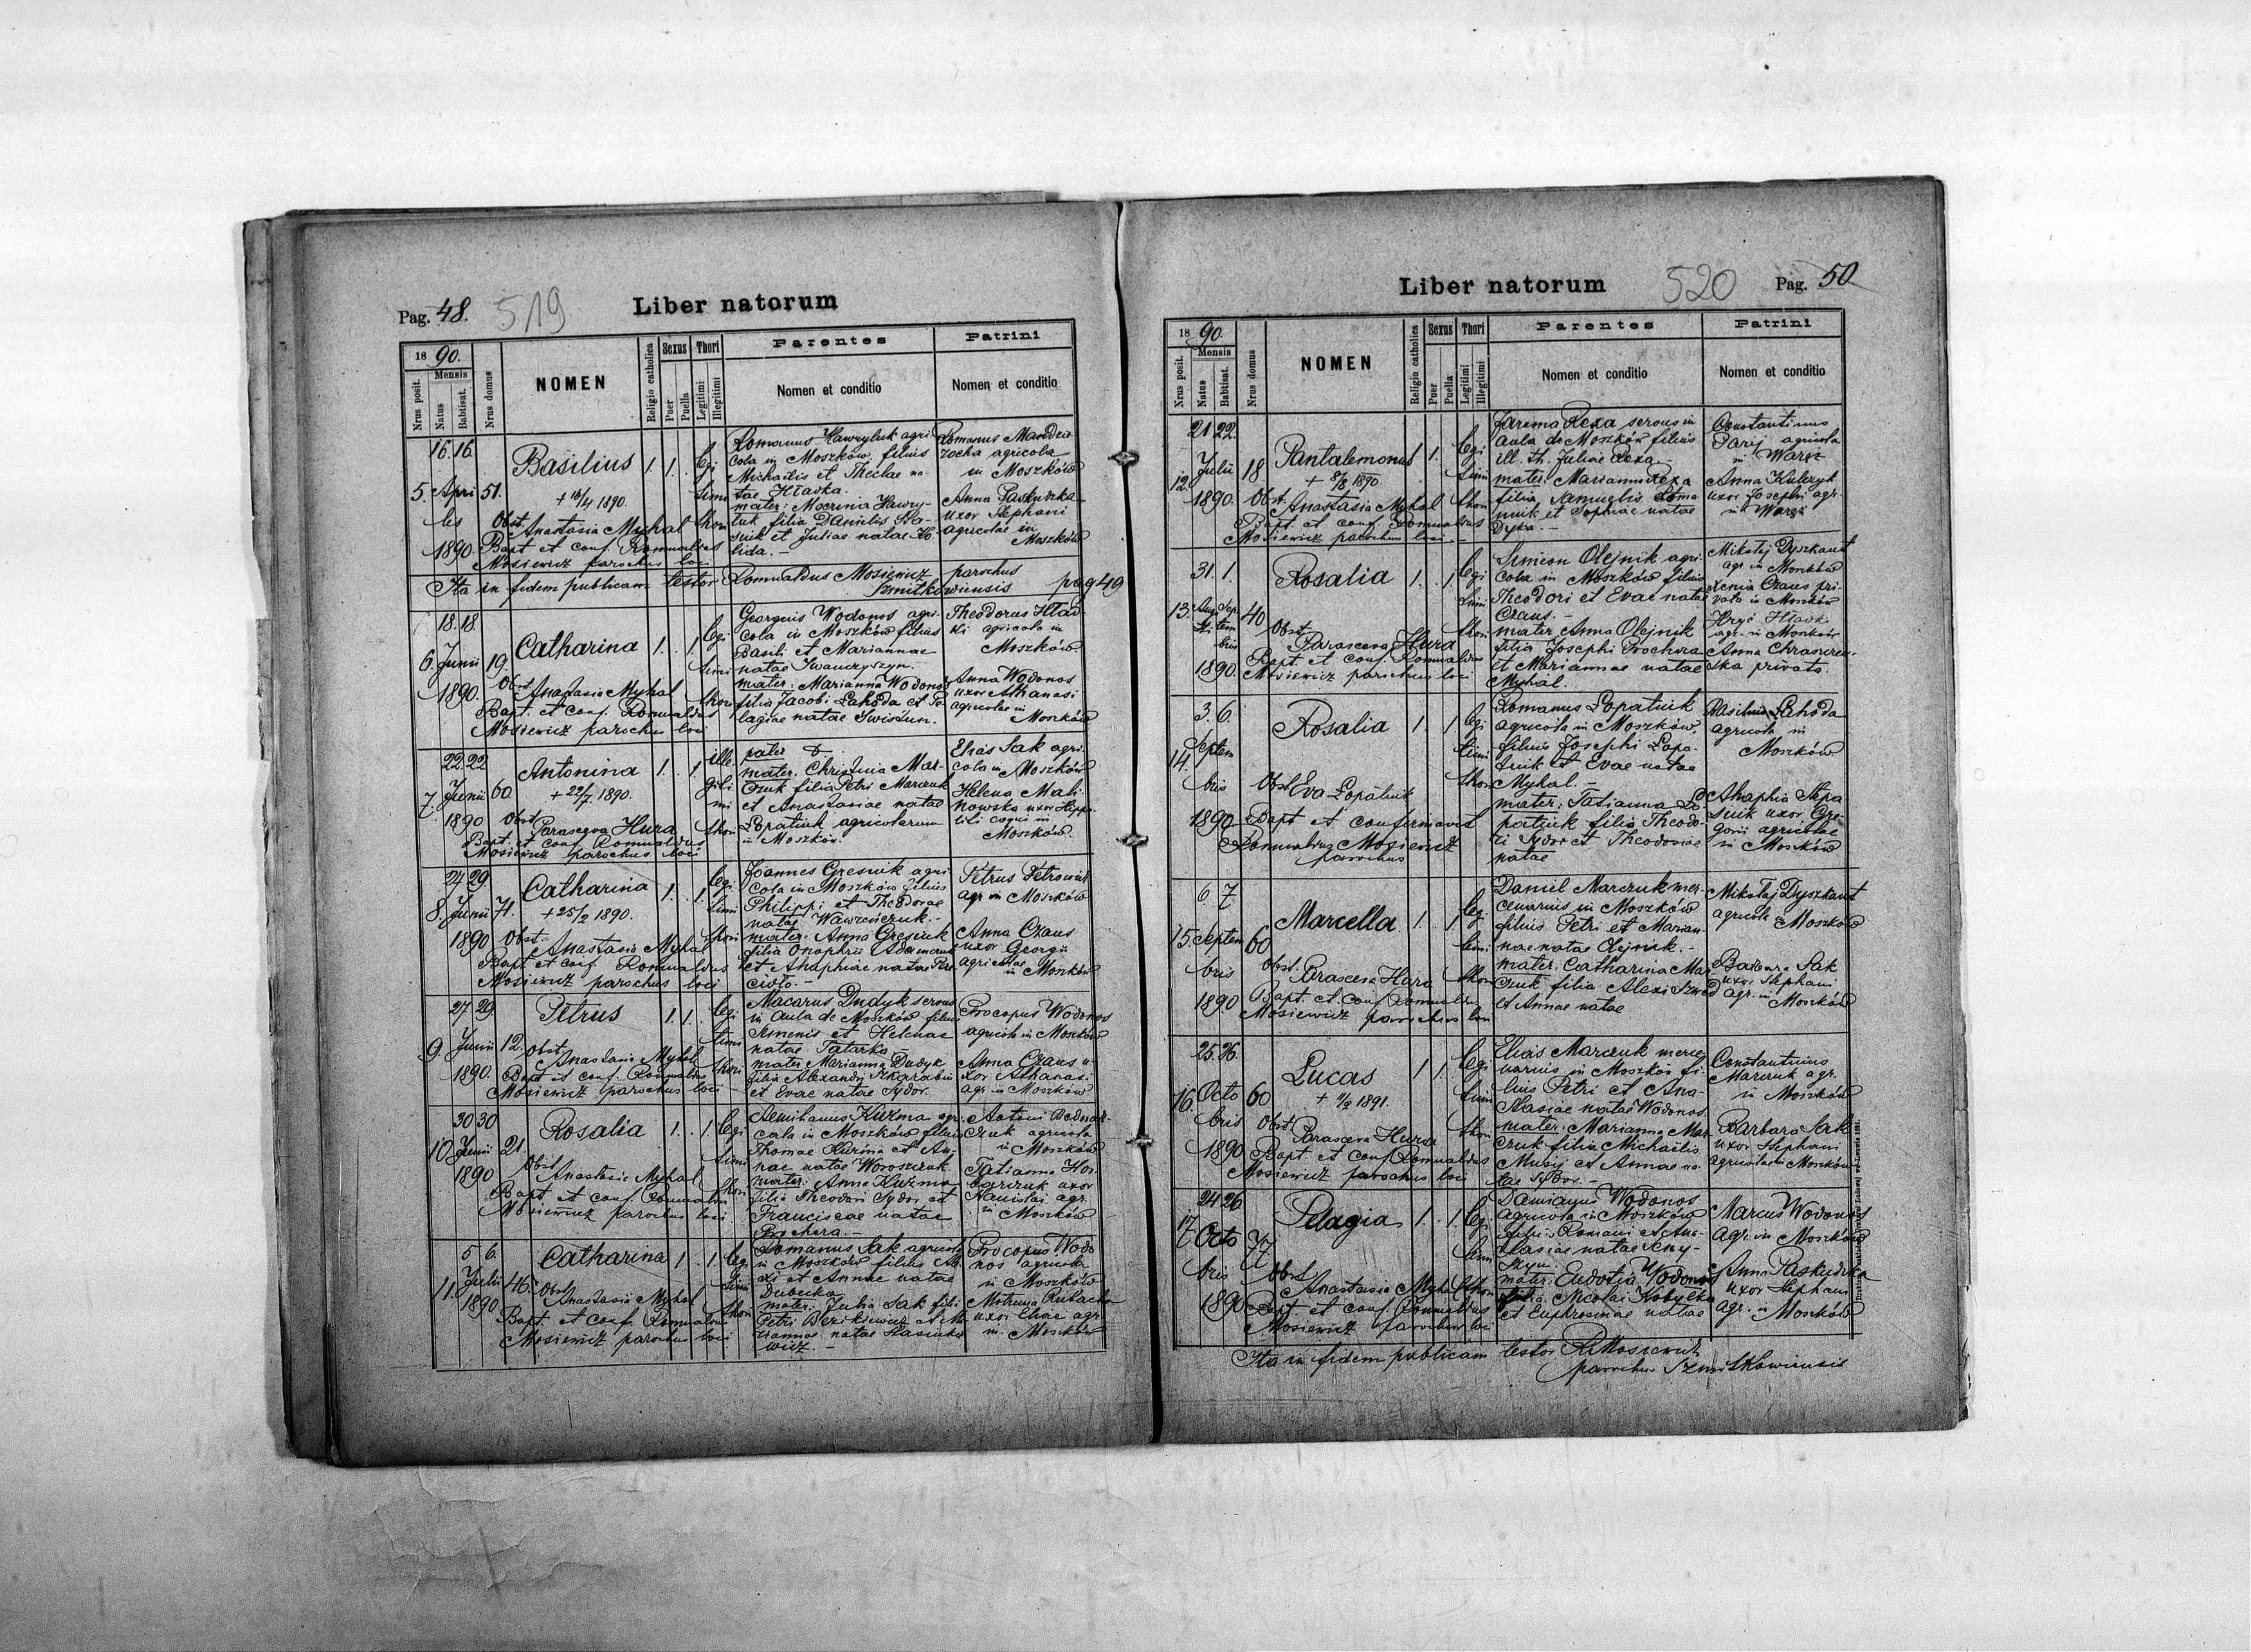 Pag. 48. 519 Liber natorum
18 90.
Mensis
Nrus posit.
Natus
Babtisat.
Nrus domus
NOMEN
Religio catholica
Sexus
Puer
Puella
Thori
Legitimi
Illegitimi
Parentes
Nomen et conditio
Patrini
Nomen et conditio
16. 16.
5. Apri 51.
lis
1890
Basilius 1. 1.
+ 18/4 1890.
Obst. Anastasia Myhal
Bapt et conf. Romualdus
Mosiewicz parochus loci
legi
timi
thori
Romanus Hawryluk agri
cola in Moszków filius
Michaelis et Theclae na
tae Hławka.
mater: Macrinia Hawry-
luk filia Danielis
et Juliae natae
lida. -
Romanus
agricola
in Moszków
Anna Paskudzka
uxor Stephani
agricolae in
Moszków
Ita in fidem publicam testor Romualdus Mosiewicz parochus
Szmitkowiensis pag 49
18. 18.
6. Junii 19.
1890.
Catharina 1. 1.
Obst. Anastasia Myhal
Bapt. et conf. Romualdus
Mosiewicz parochus loci
legi
timi
thori
Georgius Wodonos agri-
cola in Moszków filius
Basili et Mariannae
natae Iwanczyszyn.
mater: Marianna Wodonos
filia Jacobi Lahoda et Pe
lagiae natae Swistun.
Theodorus Hład
ki agricola in
Moszków
Anna Wodonos
uxor Athanasi
agricolae in
Moszków
22. 22
7. Junii 60.
1890
Antonina 1. 1.
+ 22/7 1890.
Obst. Parasceva Hura
Bapt. et conf. Romualdus
Mosiewicz parochus loci
ille
giti
mi
thori
pater
mater. Christina Mar-
czuk filia Petri Marczuk
et Anastasiae natae
Lopatiuk agricolarum
in Moszków.
Elias Sak agri
cola in Moszków
Helena Mali
nowska uxor Hippo
liti coqui in
Moszków.
27 29.
8. Junii 71.
1890
Catharina 1. 1.
+ 25/7 1890.
Obst. Anastasia Myhal
Bapt. et conf. Romualdus
Mosiewicz parochus loci
legi
timi
thori
Joannes Gresiuk agri
cola in Moszków filius
Philippi et Theodorae
natae Wawreńczuk. -
mater: Anna Gresiuk
filia Onophrii
et Ahaphiae natae
Petrus
agr in Moszków
Anna Czaus
uxor Georgii
agricolae
in Moszków
27 29.
9. Junii 12.
1890.
Petrus 1. 1.
Obst. Anastasia Myhal
Bapt et conf. Romualdus
Mosiewicz parochus loci
legi
timi
thori
Macarus Dudyk servus
in aula de Moszków filius
Simenis et Helenae
natae Tatarka -
mater Marianna Dudyk
filia Alexandri
et Evae natae Sydor.
Procopus Wodonos
agricola in Moszków
Anna Czaus u-
xor Athanasi
agr. in Moszków
30 30
10. Junii 21.
1890
Rosalia 1. 1.
Obst. Anastasia Myhal
Bapt et conf. Romualdus
Mosiewicz parochus loci
legi
timi
thori
Aemilianus Kuzma agri-
cola in Moszków filius
Thomae Kuzma et An-
nae natae Woroszczuk.
mater: Anna Kuzma
filia Theodori Sydor et
Franciscae natae
Prochera. -
Antoni Bednar-
czuk agricola
in Moszków
Tatianna Hon
czuk uxor
Stanislai agr.
in Moszków
5 6.
11. Julii 46.
1890
Catharina 1. 1.
Obst. Anastasia Myhal
Bapt et conf. Romualdus
Mosiewicz parochus loci
legi
timi
thori
Romanus Sak agricola
in Moszków filius Ale
xi et Annae natae
Dubecka
mater: Julia Sak filia
Petri et Ma
riannae natae Stasiukie
wicz. -
Procopus Wodo
nos agricola
in Moszków
Motruna
uxor Eliae agr.
in Moszków
Liber natorum 520 Pag. 50.
18 90.
Mensis
Nrus posit.
Natus
Babtisat.
Nrus domus
NOMEN
Religio catholica
Sexus
Puer
Puella
Thori
Legitimi
Illegitimi
Parentes
Nomen et conditio
Patrini
Nomen et conditio
21 22.
12. Julii 18
1890.
Pantalemonus 1.
+ 8/8 1890.
Obst. Anastasia Myhal
Bapt. et conf. Romualdus
Mosiewicz parochus loci. -
legi
timi
thori
Jarema Rexa servus in
aula de Moszków filius
ill. th. Juliae Rexa -
mater: Marianna Rexa
filia Samuelis Roma
niuk et Sophiae natae
Dyka. -
Constantinus
Paryj agricola
in Warez
Anna Kulczyk
uxor Josephi agr.
in Warez
31. 1.
13. Augu Sep 40
sti tem
bris
1890.
Rosalia 1. 1.
Obst. Parasceva Hura
Bapt. et conf. Romualdus
Mosiewicz parochus loci
legi
timi
thori
Simeon Olejnik agri-
cola in Moszków filius
Theodori et Evae natae
Czaus. -
mater Anna Olejnik
filia Josephi Prochera
et Mariannae natae
Myhal.
Mikołaj Dyszkant
agr. in Moszków
Xenia Czaus pri-
vata in Moszków
Hryć Hładki
agr. in Moszków
Anna
ska privata.
3. 6.
14. Septem
bris
1890
Rosalia 1. 1
Obst Eva Lopatiuk
Bapt et confirmavit
Romualdus Mosiewicz
parochus
legi
timi
thori
Romanus Lopatiuk
agricola in Moszków,
filius Josephi Lopa-
tiuk et Evae natae
Myhal. -
mater: Tatianna Lo-
patiuk filia Theodo-
ri Sydor et Theodosiae
natae
Basilius Lahoda
agricola in
Moszków
Ahaphia Stepa
siuk uxor Gre
gorii agricolae
in Moszków
6 7
15. Septem 60
bris
1890
Marcella 1. 1
Obst. Parasceva Hura
Bapt. et conf. Romualdus
Mosiewicz parochus loci
legi
timi
thori
Daniel Marczuk mer-
cenarius in Moszków
filius Petri et Marian-
nae natae Olejnik. -
mater: Catharina Mar
czuk filia Alexi Szwed
et Annae natae
Mikołaj Dyszkant
agricola in Moszków
Barbara Sak
uxor Stephani
agr. in Moszków
25. 26.
16. Octo 60
bris
1890
Lucas 1 1.
+ 1891.
Obst. Parasceva Hura
Bapt. et conf. Romualdus
Mosiewicz parochus loci
legi
timi
thori
Elias Marczuk merce
narius in Moszków fi-
lius Petri et Ana-
stasiae natae Wodonos
mater: Marianna Mar
czuk filia Michaelis
Musij et Annae na
tae Sydor. -
Constantinus
Marczuk agr.
in Moszków
Barbara Sak
uxor Stephani
agricolae in Moszków
24 26
17. Octo 77
bris
1890
Pelagia 1. 1.
Obst Anastasia Myhal
Bapt. et conf. Romualdus
Mosiewicz parochus loci
legi
timi
thori
Damianus Wodonos
agricola in Moszków
filius Romani et Ana-
stasiae natae
mater: Eudotia Wodonos
filia Nicolai Kobyłka
et Euphrosinae natae
Marcus Wodonos
agr. in Moszków
Anna Paskudzka
uxor Stephani
agr. in Moszków
Ita in fidem publicam testor RMosiewicz
parochus Szmitkowiensis